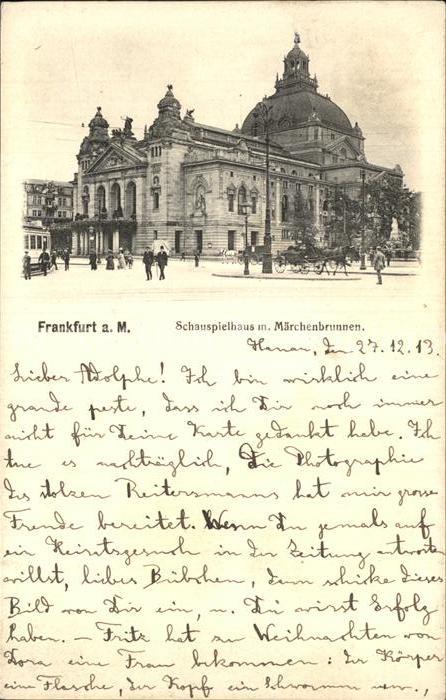 Frankfurt a. M.
Schauspielhaus m. Märchenbrunnen.
Hanau, den 27.12.13.
Lieber Adolphe! Ich bin wirklich eine
grande peste, dass ich Dir noch immer
nicht für Deine Karte gedankt habe. Ich
tue es nachträglich, Die Photographie
des stolzen Reitersmanns hat mir grosse
Freude bereitet. Wenn Du jemals auf
ein Heiratsgesuch in der Zeitung antworten
willst, liebes Bübchen, dann schicke dieses
Bild von Dir ein, u. Du wirst Erfolg
haben. – Fritz hat zu Weihnachten von
Dora eine Frau bekommen: der Körper
eine Flasche, der Kopf ein Schwamm